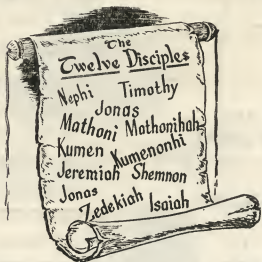 The
Twelve Disciples
Nephi Timothy
Jonas
Mathoni Mathonihah
Kumen Kumenonhi
Jeremiah Shemnon
Jonas
Zedekiah Isaiah